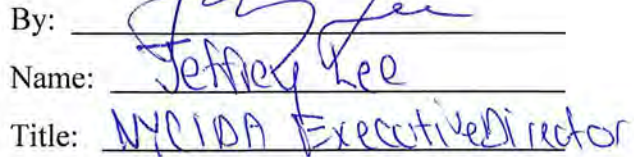 By:
Name: Jeffrey Lee
Title: NYCIDA Executive Director